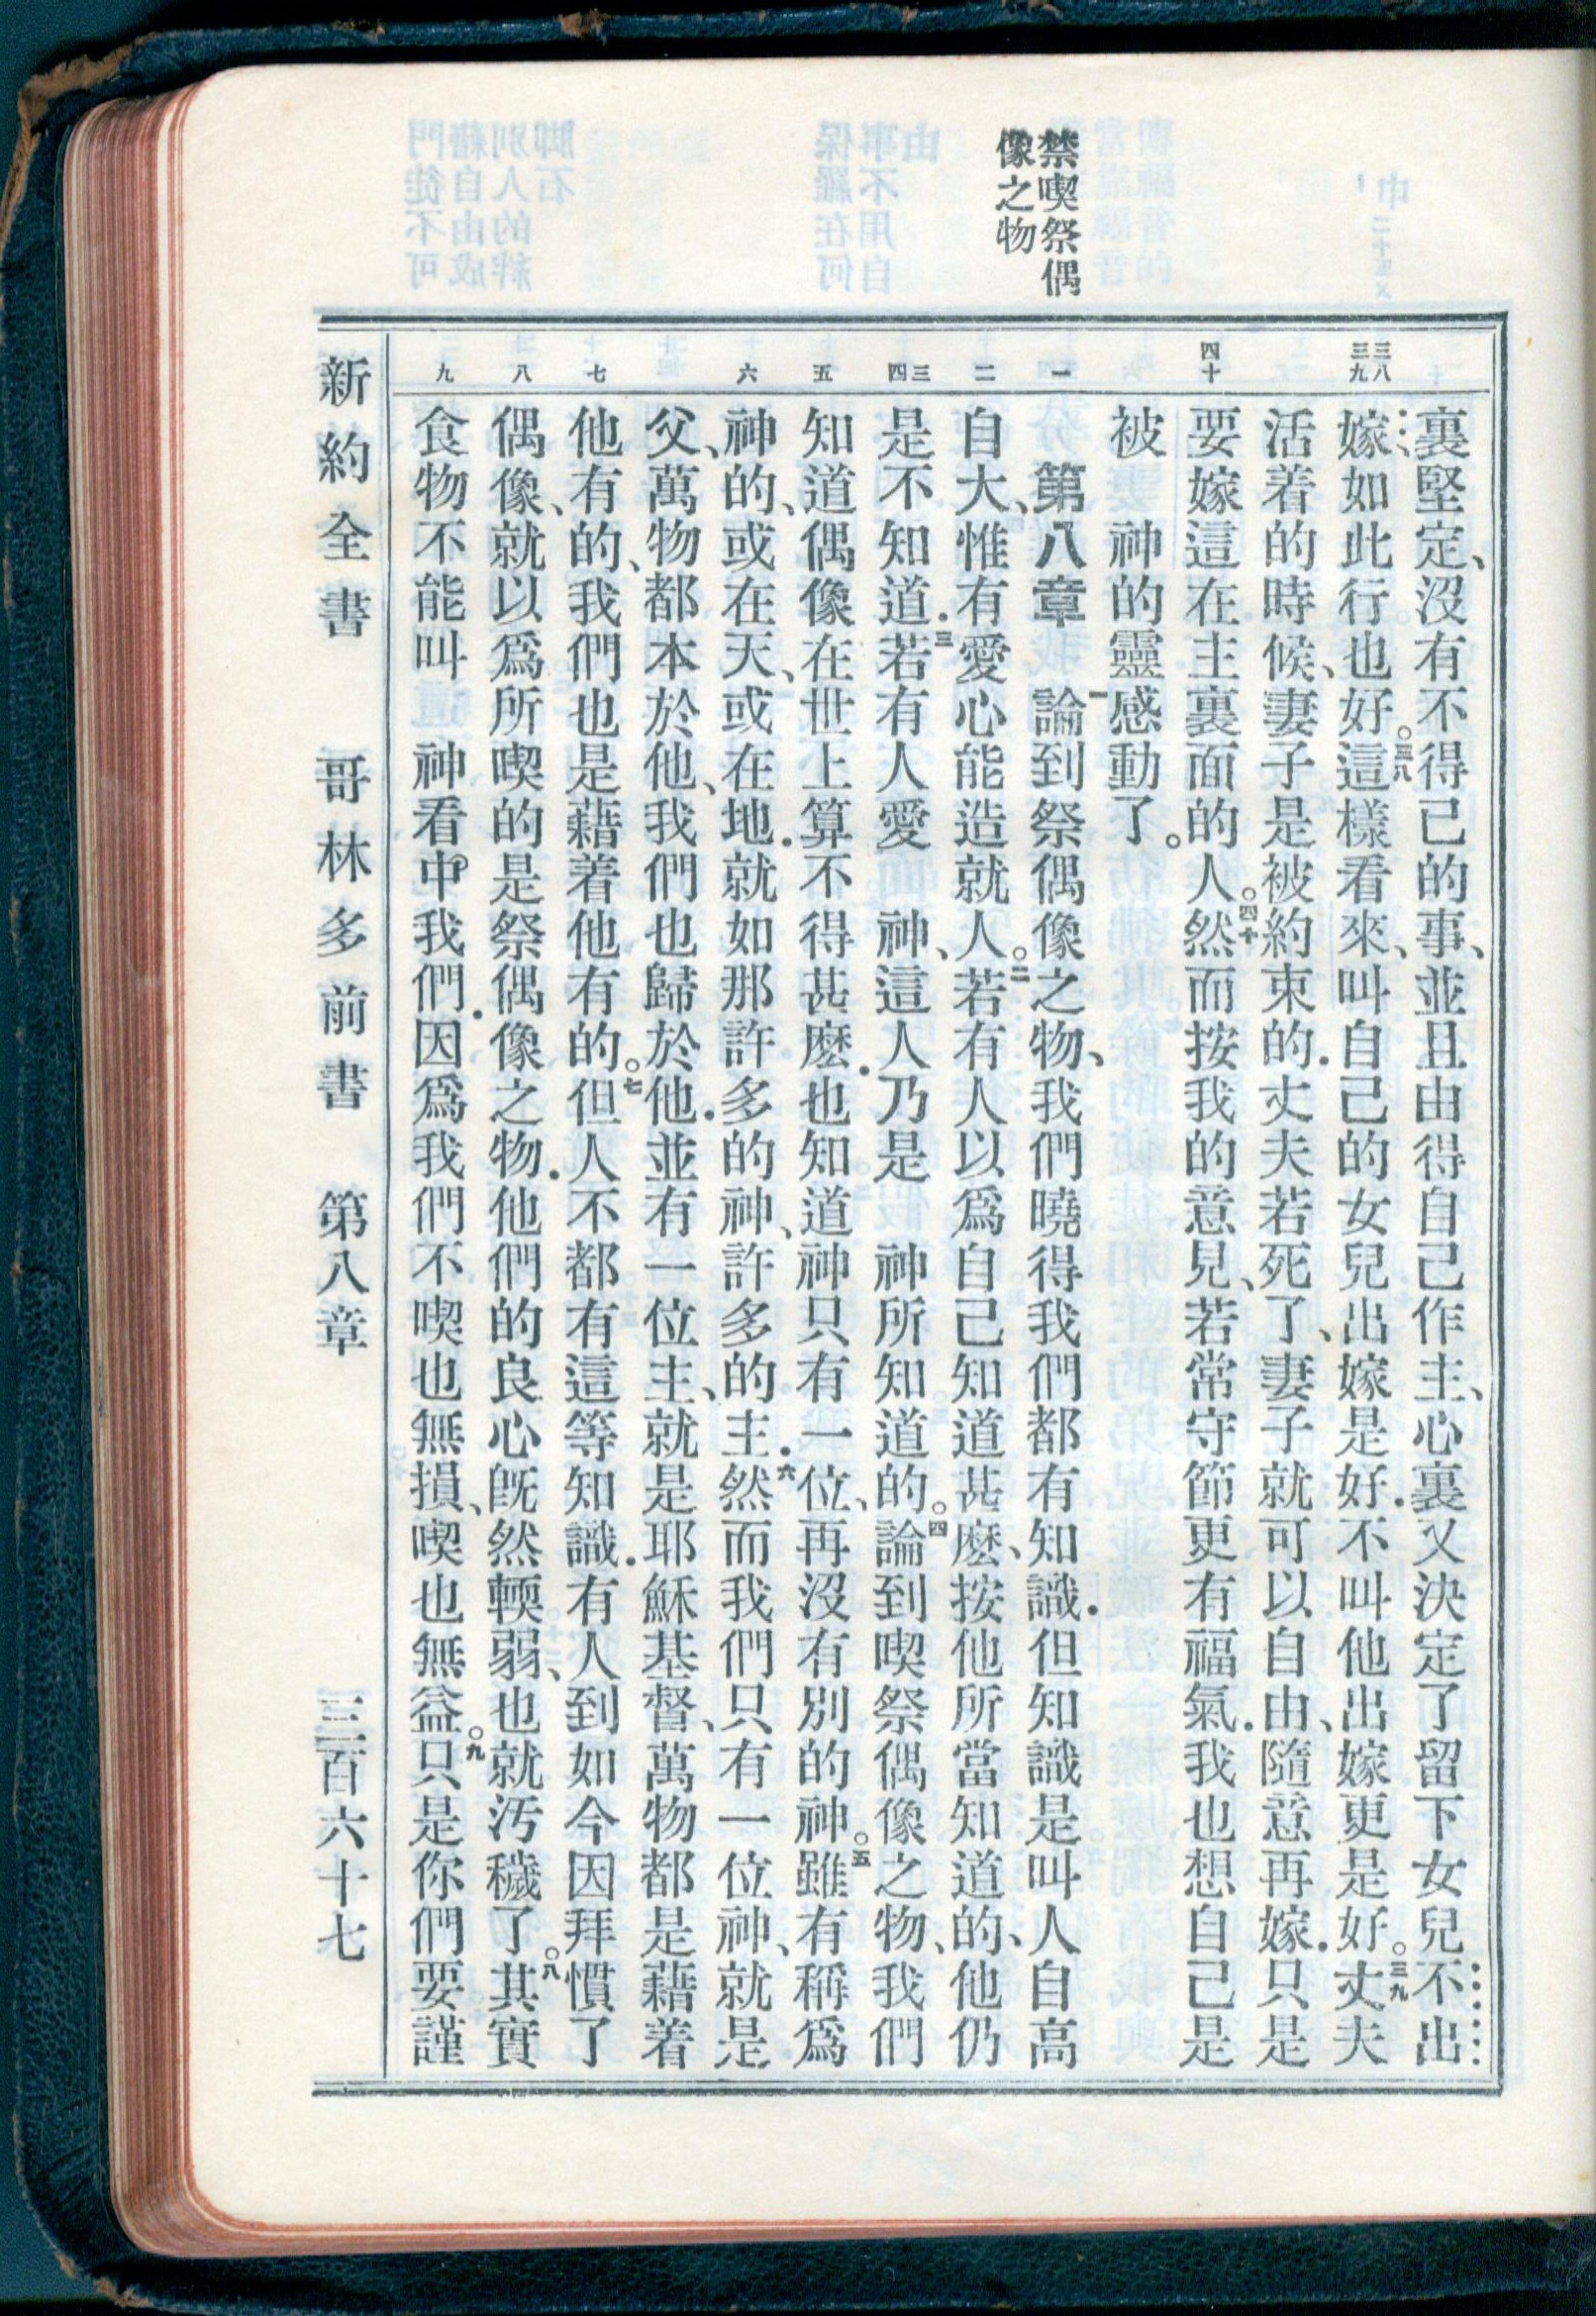 禁喫祭偶
像之物
三八
三九
四十
一
二
三
四
五
六
七
八
九
裏堅定、沒有不得已的事、並且由得自己作主、心裏又決定了留下女兒不出
嫁如此行也好。三八這樣看來、叫自己的女兒出嫁是好．不叫他出嫁更是好。三九丈夫
活着的時候、妻子是被約束的．丈夫若死了、妻子就可以自由、隨意再嫁．只是
要嫁這在主裏面的人。四十然而按我的意見、若常守節更有福氣．我也想自己是
被　神的靈感動了。
第八章　一論到祭偶像之物、我們曉得我們都有知識．但知識是叫人自高
自大、惟有愛心能造就人。二若有人以爲自己知道甚麽、按他所當知道的、他仍
是不知道．三若有人愛　神、這人乃是　神所知道的。四論到喫祭偶像之物、我們
知道偶像在世上算不得甚麽．也知道神只有一位、再沒有別的神。五雖有稱爲
神的、或在天、或在地．就如那許多的神、許多的主．六然而我們只有一位神、就是
父、萬物都本於他、我們也歸於他．並有一位主、就是耶穌基督、萬物都是藉着
他有的、我們也是藉着他有的。七但人不都有這等知識．有人到如今因拜慣了
偶像、就以爲所喫的是祭偶像之物．他們的良心旣然輭弱、也就汚穢了。八其實
食物不能叫　神看中我們．因爲我們不喫也無損、喫也無益。九只是你們要謹
新約全書　哥林多前書　第八章　三百六十七